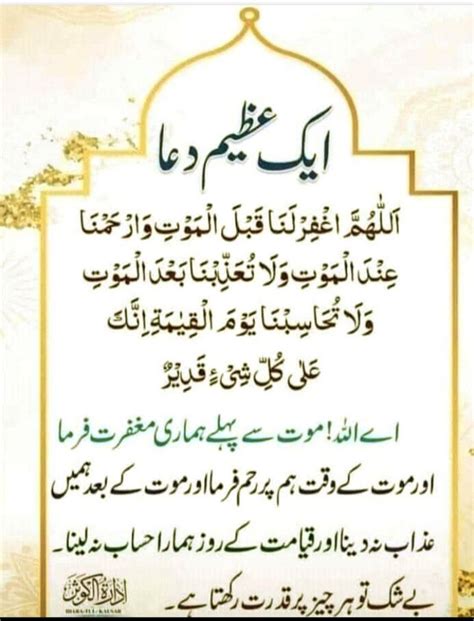 ایک عظیم دعا
اَللّٰهُمَّ اغْفِرْلَنَا قَبْلَ الْمَوْتِ وَارْحَمْنَا
عِنْدَ الْمَوْتِ وَلَا تُعَذِّبْنَا بَعْدَ الْمَوْتِ
وَلَا تُحَاسِبْنَا يَوْمَ الْقِيٰمَةِ اِنَّكَ
عَلٰى كُلِّ شَىْءٍ قَدِيْرٌ
اے اللہ! موت سے پہلے ہماری مغفرت فرما
اور موت کے وقت ہم پر رحم فرما اور موت کے بعد ہمیں
عذاب نہ دینا اور قیامت کے روز ہمارا حساب نہ لینا۔
بے شک تو ہر چیز پر قدرت رکھتا ہے۔
ادارة الکوثر
IDARA-TUL-KAUSAR